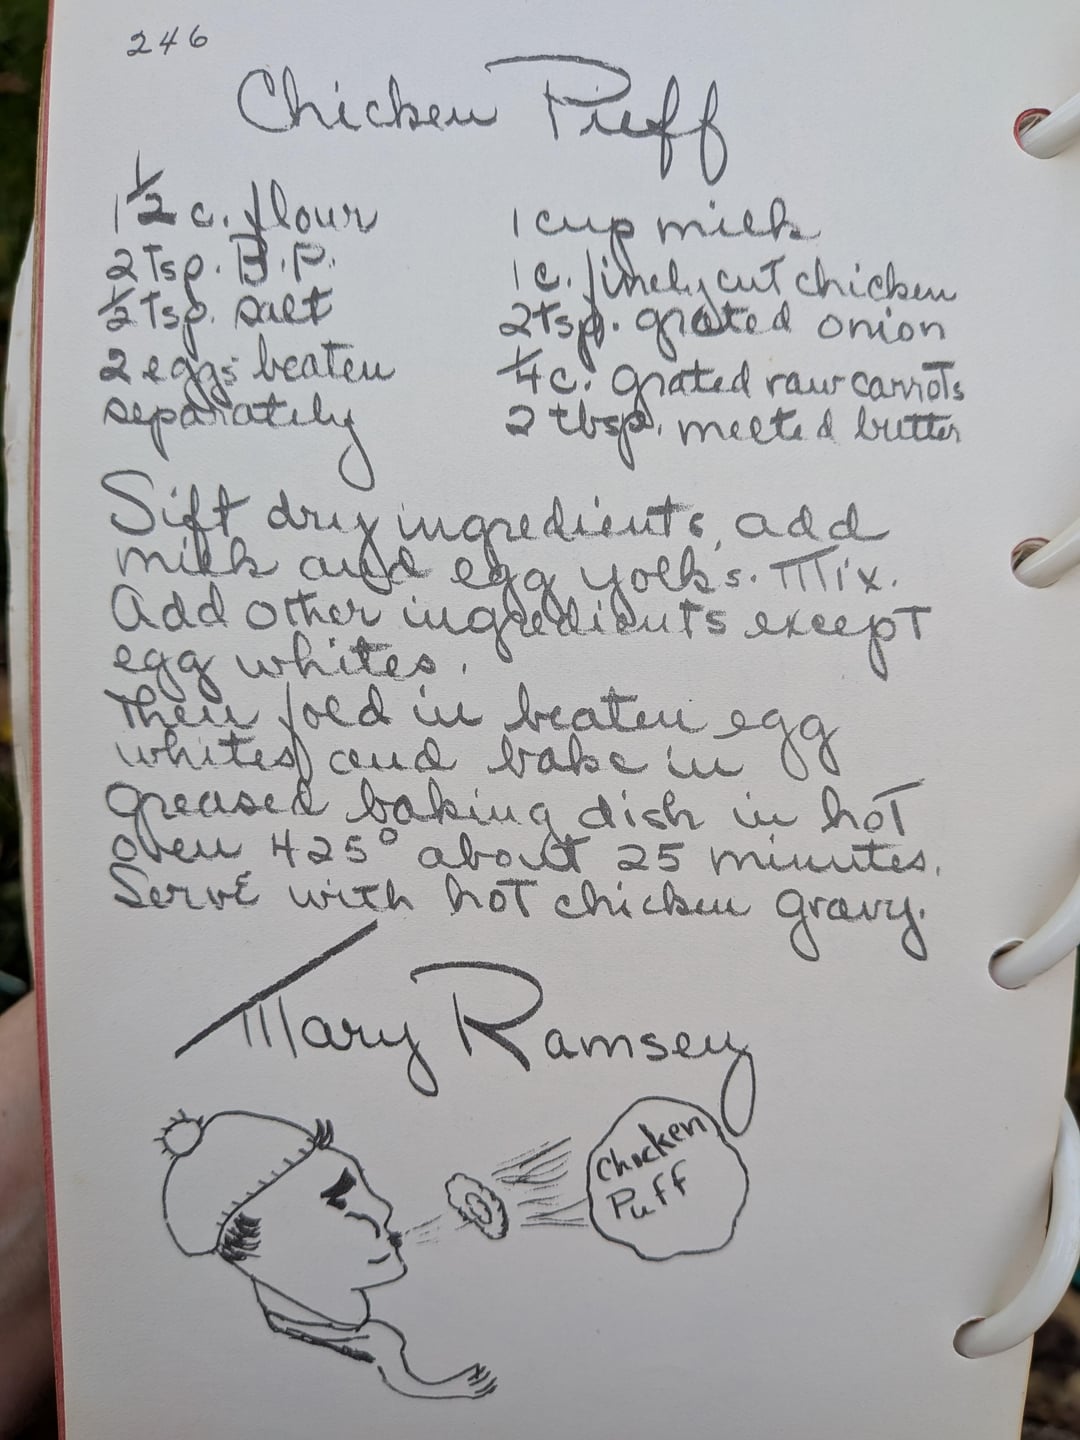 246
Chicken Puff
1 1/2 c. flour
2 Tsp. B.P.
1/2 Tsp. salt
2 eggs beaten
separately
1 cup milk
1 c. finely cut chicken
2 tsp. grated onion
1/4 c. grated raw carrots
2 tbsp. melted butter
Sift dry ingredients, add
milk and egg yolks. Mix.
Add other ingredients except
egg whites.
Then fold in beaten egg
whites and bake in
greased baking dish in hot
oven 425° about 25 minutes.
Serve with hot chicken gravy.
Mary Ramsey
Chicken
Puff